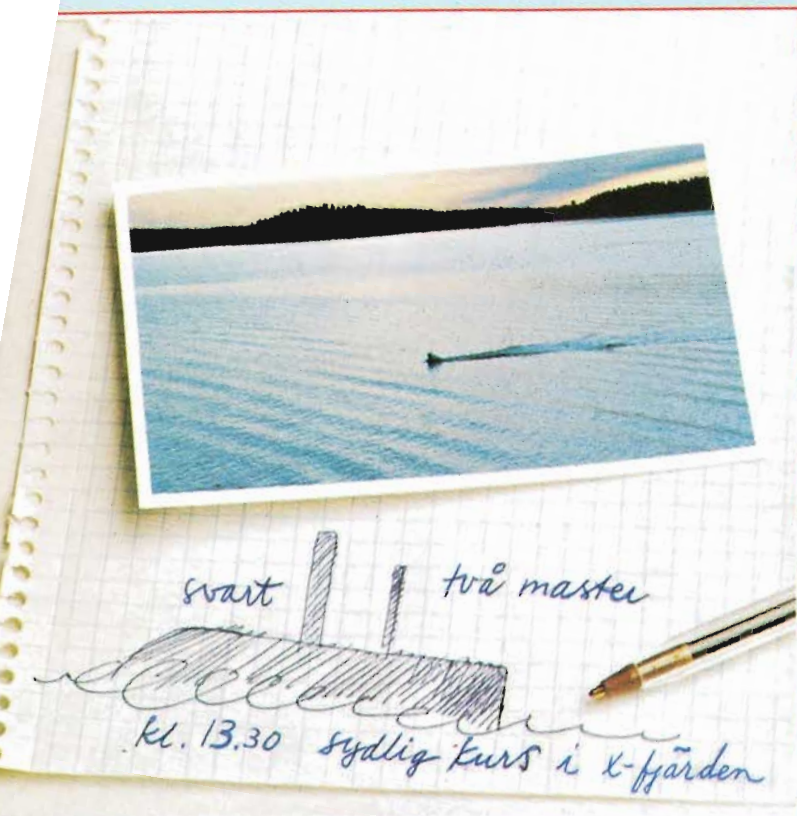 svart två master
kl. 13.30 sydlig kurs i x-fjärden